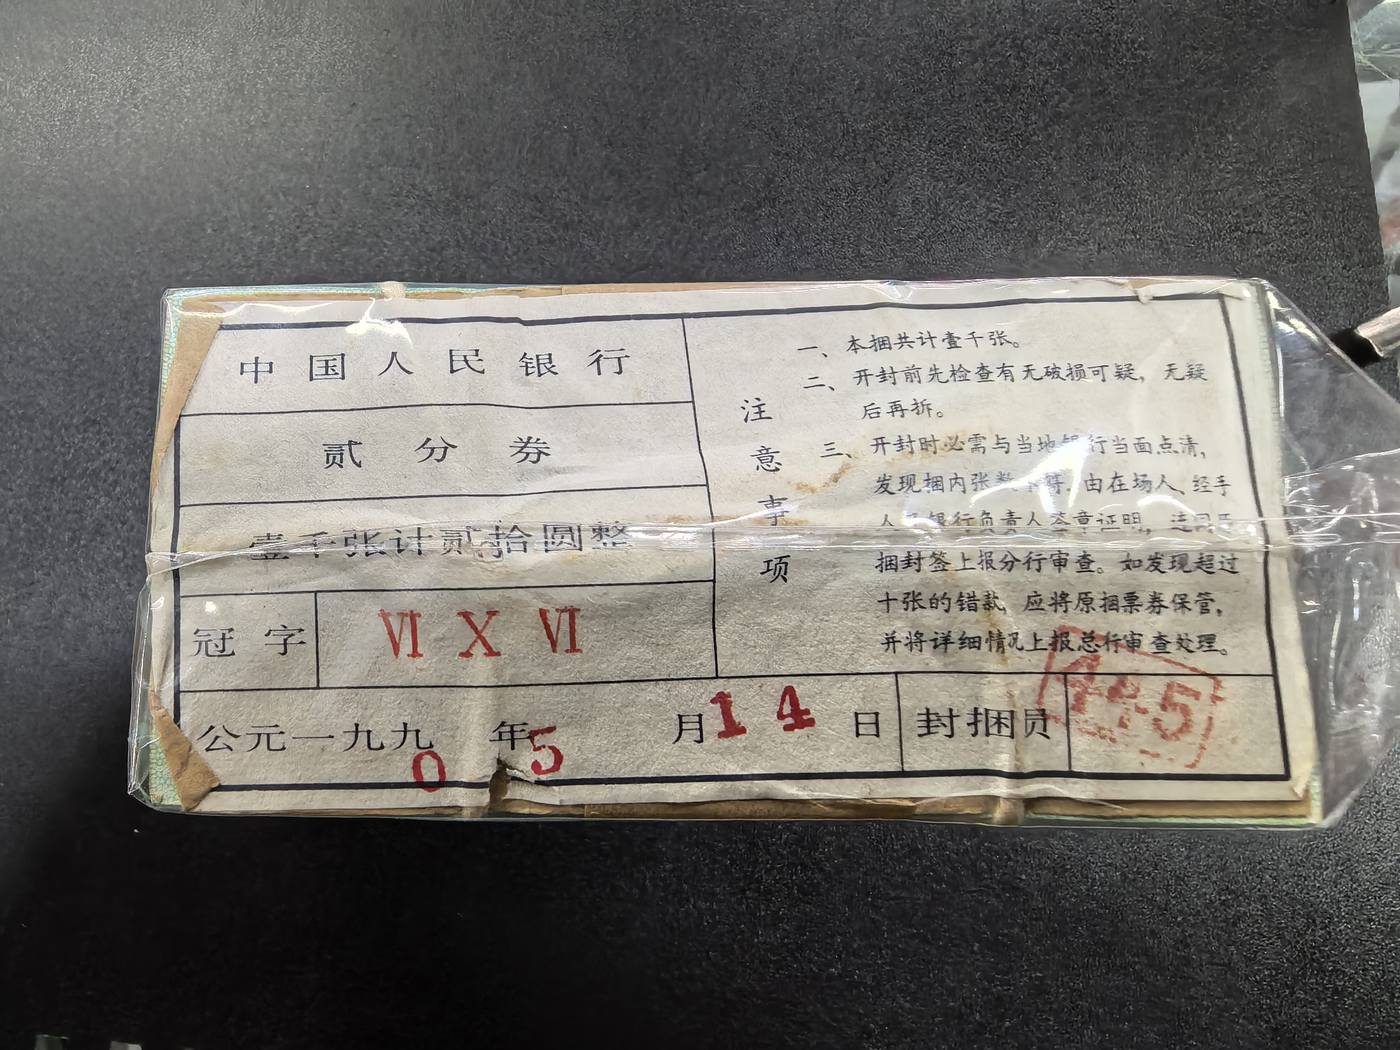 中国人民银行
贰分券
壹千张计贰拾圆整
冠字 ⅥⅩⅥ
公元一九九0年5月14日 封捆员
注意事项
一、本捆共计壹千张。
二、开封前先检查有无破损可疑，无疑
后再拆。
三、开封时必需与当地银行当面点清，
发现捆内张数 由在场人、经手
人 银行负责人签章证明，连同
捆封签上报分行审查。如发现超过
十张的错款，应将原捆票券保管，
并将详细情况上报总行审查处理。